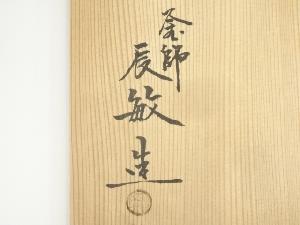 釜師
辰敏造